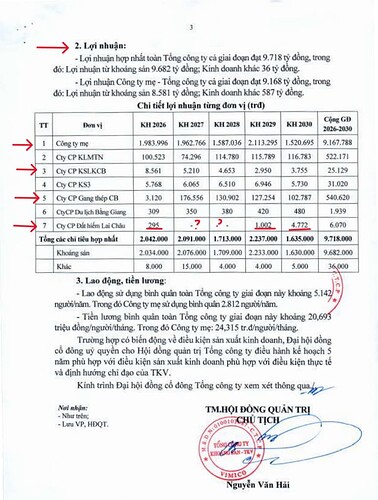 3
2. Lợi nhuận:
- Lợi nhuận hợp nhất toàn Tổng công ty cả giai đoạn đạt 9.718 tỷ đồng, trong
đó: Lợi nhuận từ khoáng sản 9.682 tỷ đồng; Kinh doanh khác 36 tỷ đồng.
- Lợi nhuận Công ty Mẹ - Tổng công ty cả giai đoạn đạt 9.168 tỷ đồng, trong
đó: Lợi nhuận từ khoáng sản 8.581 tỷ đồng; Kinh doanh khác 587 tỷ đồng.
Chi tiết lợi nhuận từng đơn vị (trđ)
TT Đơn vị KH 2026 KH 2027 KH 2028 KH 2029 KH 2030 Cộng GĐ 2026-2030
1 Công ty mẹ 1.983.996 1.962.766 1.587.036 2.113.295 1.520.695 9.167.788
2 Cty CP KLMTN 100.523 74.296 114.780 115.789 116.783 522.171
3 Cty CP KSLKCB 8.561 5.210 4.653 2.950 3.755 25.129
4 Cty CP KS3 5.768 6.065 6.510 6.946 5.730 31.020
5 Cty CP Gang thép CB 3.120 176.556 130.902 127.254 102.787 540.620
6 CtyCP Du lịch Bằng Giang 309 350 380 420 480 1.939
7 Cty CP Đất hiếm Lai Châu 295 - ? ? - 1.002 4.772 6.070
Tổng các chỉ tiêu hợp nhất 2.042.000 2.091.000 1.713.000 2.237.000 1.635.000 9.718.000
Khoáng sản 2.034.000 2.076.000 1.709.000 2.233.000 1.630.000 9.682.000
Khác 8.000 15.000 4.000 4.000 5.000 36.000
3. Lao động, tiền lương:
- Lao động sử dụng bình quân toàn Tổng công ty giai đoạn này khoảng 5.142
người/năm. Trong đó Công ty mẹ sử dụng bình quân 2.812 người/năm.
- Tiền lương bình quân toàn Tổng công ty giai đoạn này khoảng 20,693
triệu đồng/người/tháng. Trong đó Công ty mẹ: 24,315 tr.đ/người/tháng.
Trường hợp có biến động về điều kiện sản xuất kinh doanh, Đại hội đồng
cổ đông uỷ quyền cho Hội đồng quản trị Tổng công ty điều hành kế hoạch 5
năm phù hợp với điều kiện sản xuất kinh doanh phù hợp với điều kiện thực tế
và định hướng chỉ đạo của TKV.
Kính trình Đại hội đồng cổ đông Tổng công ty xem xét thông qua./.
Nơi nhận:
- Như trên;
- Lưu VP, HĐQT.
TM.HỘI ĐỒNG QUẢN TRỊ
CHỦ TỊCH
TỔNG CÔNG TY
KHOÁNG SẢN - TKV
VIMICO
Nguyễn Văn Hải